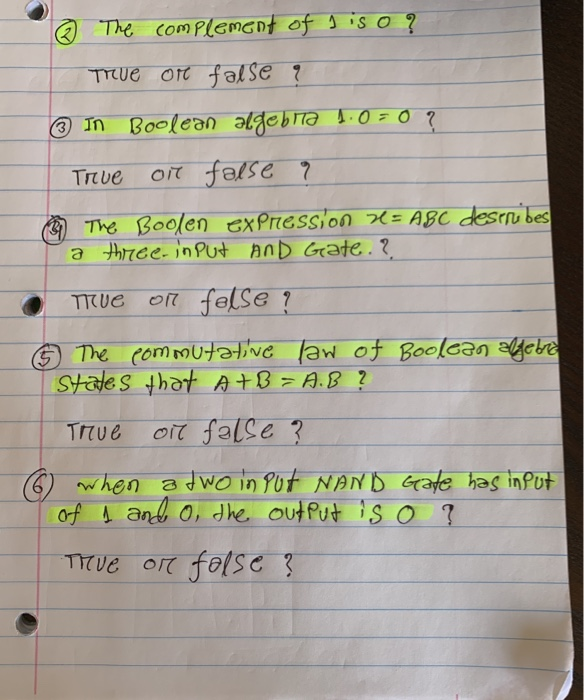 ② The complement of 1 is 0 ?
True or false ?
③ In Boolean algebra 1.0 = 0 ?
True or false ?
④ The Boolen expression x = ABC describes
a three-input AND Gate. ?
True or false ?
⑤ The commutative law of Boolean algebra
states that A + B = A.B ?
True or false ?
⑥ when a two input NAND Gate has input
of 1 and 0, the output is 0 ?
True or false ?